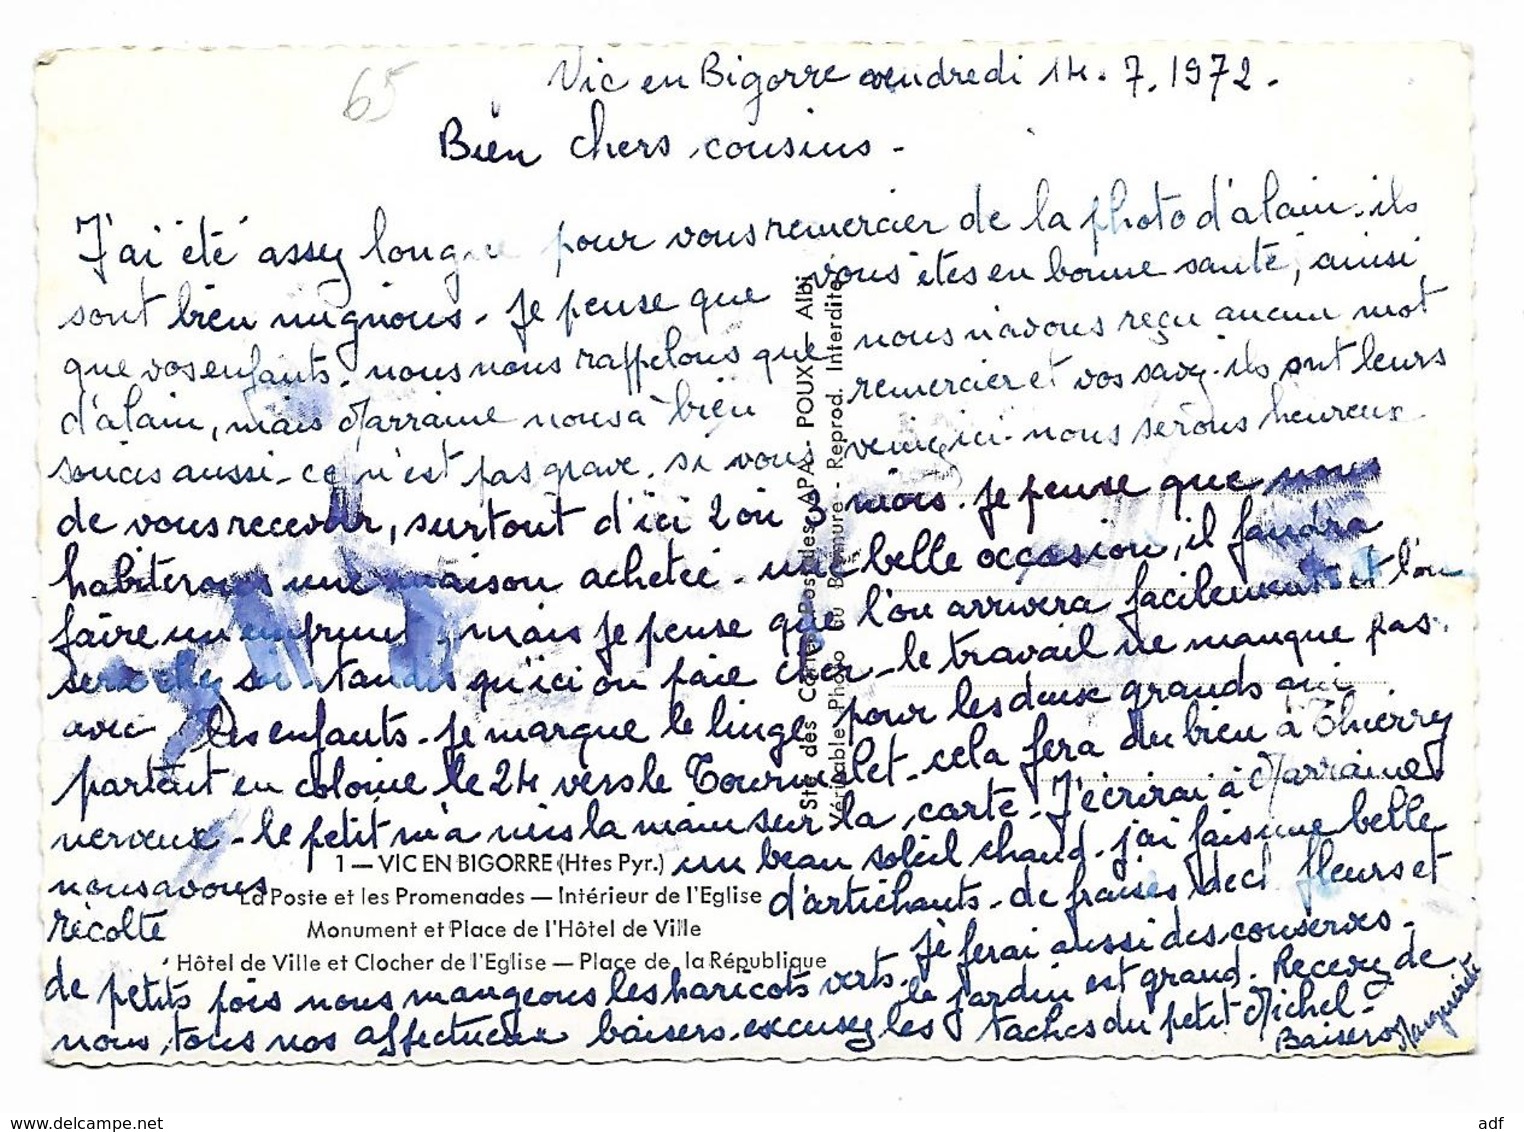 65
Vic en Bigorre vendredi 14.7.1972.
Bien chers cousins -
J'ai été assez longue pour vous remercier de la photo d'alain. ils
sont bien mignons - Je pense que vous êtes en bonne santé, ainsi
que vos enfants. nous nous rappelons que nous n'avons reçu aucun mot
d'alain, mais Marraine nous à bien remercier et vos savez. ils ont leurs
soucis aussi - ce n'est pas grave. si vous venez ici - nous serons heureux
de vous recevoir, surtout d'ici 2 ou 3 mois. Je pense que nous
habiterons une maison achetée - une belle occasion, il faudra
faire un emprunt, mais je pense que l'on arrivera facilement et l'on
sera chez soi tandis qu'ici on paie cher - le travail ne manque pas.
avec les enfants - Je marque le linge pour les deux grands qui
partent en colonie le 24 vers le Tourmalet - cela fera du bien à Thierry
nerveux - le petit m'a mis la main sur la carte - J'écrirai à Marraine
nous avons un beau soleil chaud - j'ai fais une belle
récolté d'artichauts - de fraises fleurs et
de petits pois nous mangeons les haricots verts. Je ferai aussi des conserves -
le jardin est grand. Recevez de
nous, tous nos affectueux baisers. excusez les taches du petit Michel -
Baisers Marguerite
1 — VIC EN BIGORRE (Htes Pyr.)
La Poste et les Promenades — Intérieur de l'Eglise
Monument et Place de l'Hôtel de Ville
Hôtel de Ville et Clocher de l'Eglise — Place de la République
Sté des Cartes Postales APA - POUX — Albi
Véritable Photo au Bromure - Reprod. Interdite
www.delcampe.net
adf